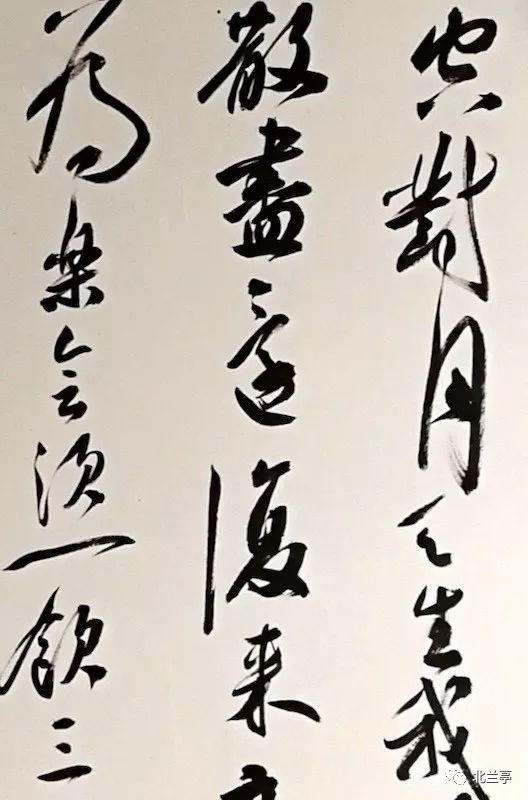 空對月天生我
散盡還復来
為楽会須一飲三
北兰亭